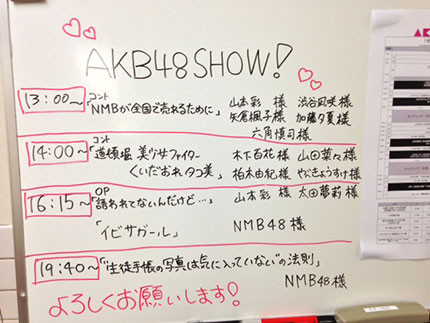 AKB48SHOW!
コント
13:00〜「NMBが全国で売れるために」 山本彩 様 渋谷凪咲様
矢倉楓子様 加藤夕夏様
六角慎司様
コント
14:00〜「道頓堀 美少女ファイター 木下百花様 山田菜々様
くいだおれタコ美」 柏木由紀様 やべきょうすけ様
OP
16:15〜「誘われてないんだけど…」 山本彩 様 太田夢莉様
「イビサガール」 NMB48 様
19:40〜「"生徒手帳の写真は気に入っていない"の法則」
NMB48様
よろしくお願いします!
AK